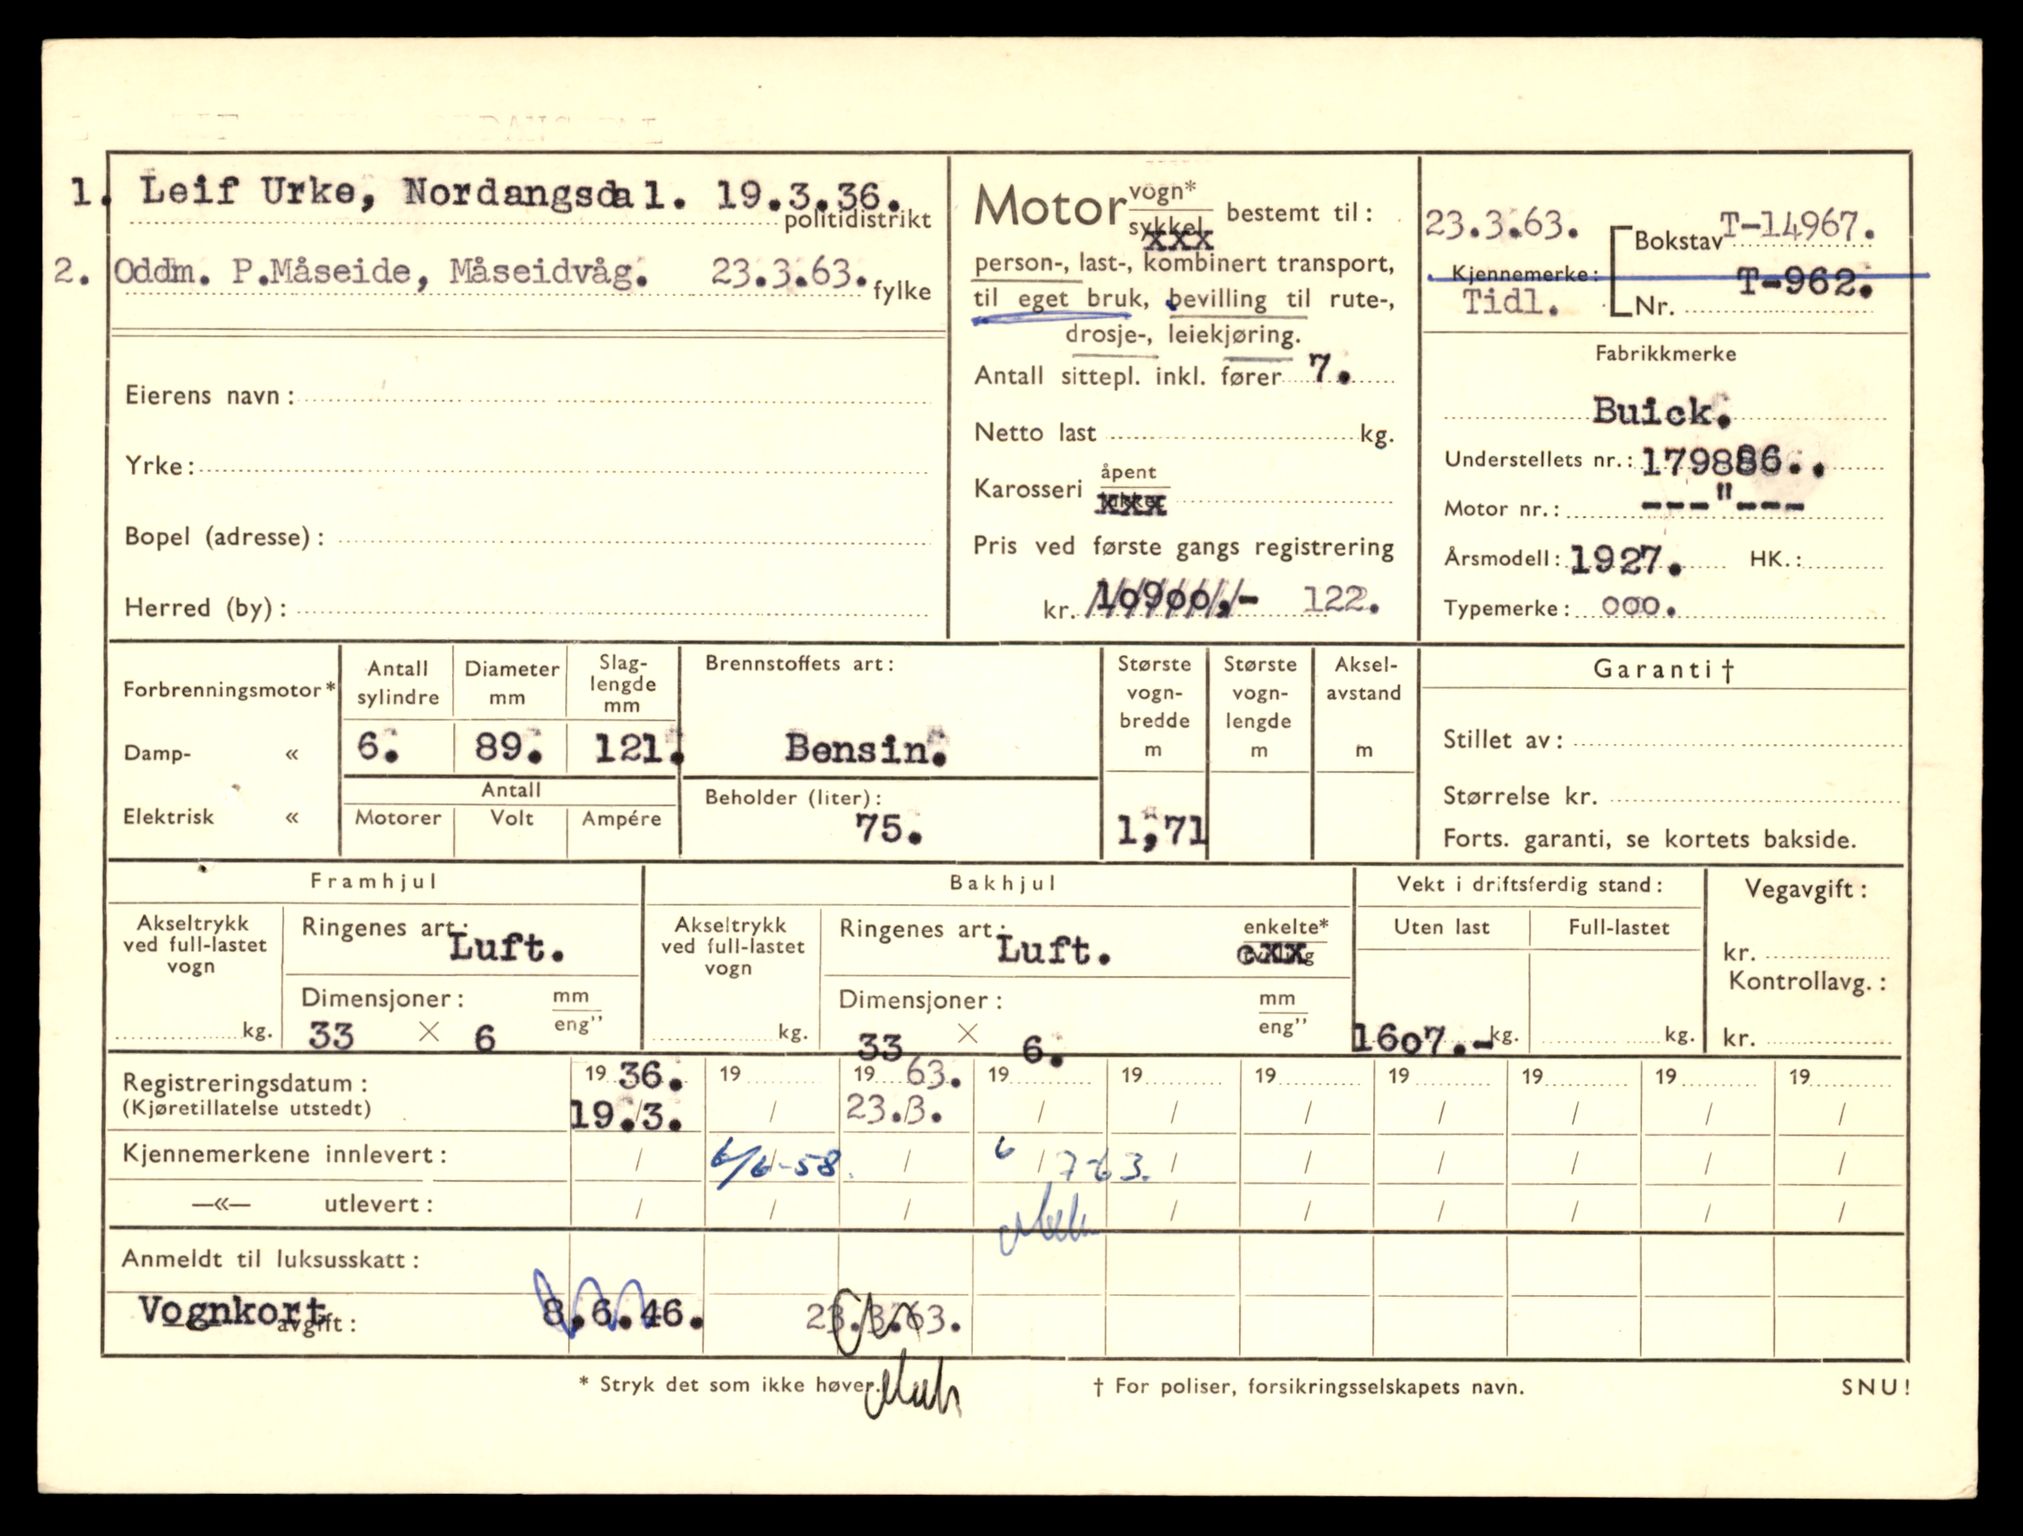 1. Leif Urke, Nordangsdal. 19.3.36.
politidistrikt
2. Oddm. P.Måseide, Måseidvåg. 23.3.63.
fylke
Eierens navn:
Yrke:
Bopel (adresse):
Herred (by):
Motor vogn*
sykkel xxx
bestemt til:
person-, last-, kombinert transport,
til eget bruk, bevilling til rute-,
drosje-, leiekjøring.
Antall sittepl. inkl. fører 7.
Netto last kg.
Karosseri åpent
xxx
Pris ved første gangs registrering
kr. 10900,- 122.
23.3.63. Bokstav T-14967.
Kjennemerke: T-962.
Tidl. Nr.
Fabrikkmerke
Buick.
Understellets nr.: 179886..
Motor nr.: ---"---
Årsmodell: 1927. HK.:
Typemerke: ooo.
Forbrenningsmotor*
Damp- «
Elektrisk «
Antall sylindre
6.
Diameter mm
89.
Slag-
lengde
mm
121.
Antall
Motorer Volt Ampére
Brennstoffets art:
Bensin.
Beholder (liter):
75.
Største
vogn-
bredde
m
1,71
Største
vogn-
lengde
m
Aksel-
avstand
m
Garanti †
Stillet av:
Størrelse kr.
Forts. garanti, se kortets bakside.
Framhjul
Akseltrykk
ved full-lastet
vogn
kg.
Ringenes art: Luft.
Dimensjoner: mm
eng’’
33 × 6
Bakhjul
Akseltrykk
ved full-lastet
vogn
kg.
Ringenes art: Luft.
enkelte*
cxx
Dimensjoner: mm
eng’’
33 × 6.
Vekt i driftsferdig stand:
Uten last Full-lastet
1607.- kg. kg.
Vegavgift:
kr.
Kontrollavg.:
kr.
Registreringsdatum: 19 36. 19 19 63. 19 19 19 19 19 19 19
(Kjøretillatelse utstedt) 19./3. / 23./3. / / / / / / /
Kjennemerkene innlevert: / 6/6-58. / 6 / 7-63. / / / / / /
—«— utlevert: / / / / / / / / /
Anmeldt til luksusskatt:
Vognkort avgift: 8.6.46. 23.3.63.
* Stryk det som ikke høver. † For poliser, forsikringsselskapets navn. SNU!